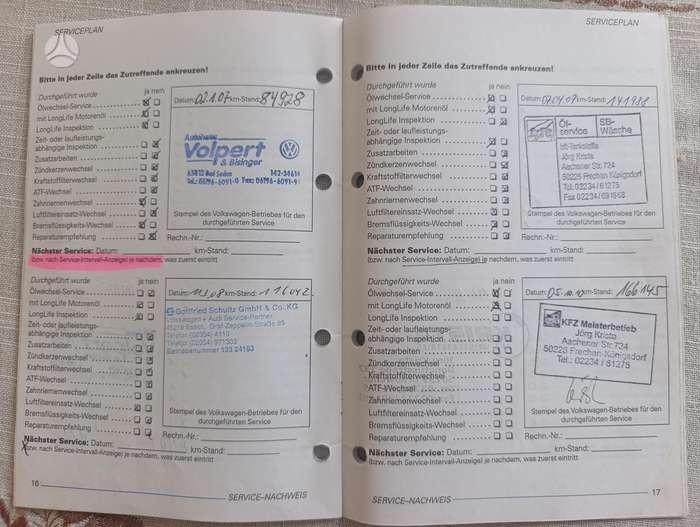 SERVICEPLAN
Bitte in jeder Zeile das Zutreffende ankreuzen!
Durchgeführt wurde ja nein
Ölwechsel-Service
mit LongLife Motorenöl
LongLife Inspektion
Zeit- oder laufleistungs-
abhängige Inspektion
Zusatzarbeiten
Zündkerzenwechsel
Kraftstoffilterwechsel
ATF-Wechsel
Zahnriemenwechsel
Luftfiltereinsatz-Wechsel
Bremsflüssigkeits-Wechsel
Reparaturempfehlung
Nächster Service: Datum: km-Stand:
(bzw. nach Service-Intervall-Anzeige) je nachdem, was zuerst eintritt
Datum: km-Stand: 84928
Autohaus
Volpert
& Bisinger
65812 Bad Soden
Stempel des Volkswagen-Betriebes für den
durchgeführten Service
Rechn.-Nr.:
Durchgeführt wurde ja nein
Ölwechsel-Service
mit LongLife Motorenöl
LongLife Inspektion
Zeit- oder laufleistungs-
abhängige Inspektion
Zusatzarbeiten
Zündkerzenwechsel
Kraftstoffilterwechsel
ATF-Wechsel
Zahnriemenwechsel
Luftfiltereinsatz-Wechsel
Bremsflüssigkeits-Wechsel
Reparaturempfehlung
Nächster Service: Datum: km-Stand:
(bzw. nach Service-Intervall-Anzeige) je nachdem, was zuerst eintritt
Datum: km-Stand: 116042
Gottfried Schultz GmbH & Co. KG
Volkswagen + Audi Service-Partner
45219 Essen, Graf-Zeppelin-Straße
Telefon (02054) 4110
Telefax (02054) 971303
Betriebsnummer
Stempel des Volkswagen-Betriebes für den
durchgeführten Service
Rechn.-Nr.:
16
SERVICE–NACHWEIS
SERVICEPLAN
Bitte in jeder Zeile das Zutreffende ankreuzen!
Durchgeführt wurde ja nein
Ölwechsel-Service
mit LongLife Motorenöl
LongLife Inspektion
Zeit- oder laufleistungs-
abhängige Inspektion
Zusatzarbeiten
Zündkerzenwechsel
Kraftstoffilterwechsel
ATF-Wechsel
Zahnriemenwechsel
Luftfiltereinsatz-Wechsel
Bremsflüssigkeits-Wechsel
Reparaturempfehlung
Nächster Service: Datum: km-Stand:
(bzw. nach Service-Intervall-Anzeige) je nachdem, was zuerst eintritt
Datum: km-Stand:
Öl-
service
SB-
Wäsche
bft-Tankstelle
Jörg Krista
Aachener Str. 724
50226 Frechen-Königsdorf
Tel. 02234 / 61275
Stempel des Volkswagen-Betriebes für den
durchgeführten Service
Rechn.-Nr.:
Durchgeführt wurde ja nein
Ölwechsel-Service
mit LongLife Motorenöl
LongLife Inspektion
Zeit- oder laufleistungs-
abhängige Inspektion
Zusatzarbeiten
Zündkerzenwechsel
Kraftstoffilterwechsel
ATF-Wechsel
Zahnriemenwechsel
Luftfiltereinsatz-Wechsel
Bremsflüssigkeits-Wechsel
Reparaturempfehlung
Nächster Service: Datum: km-Stand:
(bzw. nach Service-Intervall-Anzeige) je nachdem, was zuerst eintritt
Datum: km-Stand: 166145
KFZ Meisterbetrieb
Jörg Krista
Aachener Str. 724
50226 Frechen-Königsdorf
Tel.: 02234 / 61275
Stempel des Volkswagen-Betriebes für den
durchgeführten Service
Rechn.-Nr.:
SERVICE–NACHWEIS
17